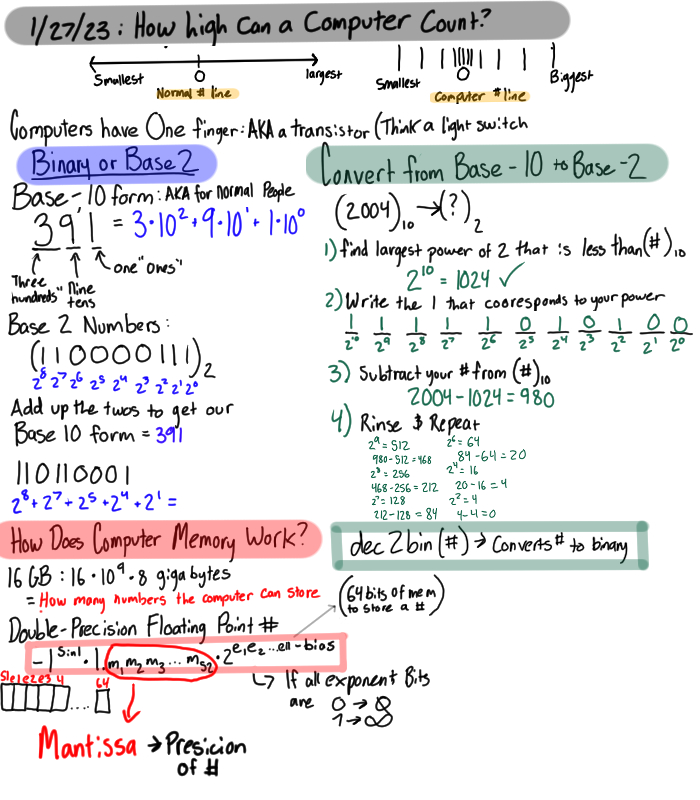 1/27/23: How high Can a Computer Count?
Smallest 0 largest
Normal # line
Smallest 0 Biggest
Computer # line
Computers have One finger: AKA a transistor (Think a light switch
Binary or Base 2
Base-10 form: AKA for Normal People
391 = 3·10² + 9·10¹ + 1·10⁰
Three hundreds" Nine tens one "ones"
Base 2 Numbers:
(110000111)₂
2⁸ 2⁷ 2⁶ 2⁵ 2⁴ 2³ 2² 2¹ 2⁰
Add up the twos to get our
Base 10 form = 391
110110001
2⁸ + 2⁷ + 2⁵ + 2⁴ + 2¹ =
Convert from Base-10 to Base-2
(2004)₁₀ → (?)₂
1) find largest power of 2 that is less than (#)₁₀
2¹⁰ = 1024 ✓
2) Write the 1 that cooresponds to your power
1 1 1 1 1 0 1 0 1 0 0
2¹⁰ 2⁹ 2⁸ 2⁷ 2⁶ 2⁵ 2⁴ 2³ 2² 2¹ 2⁰
3) Subtract your # from (#)₁₀
2004 - 1024 = 980
4) Rinse & Repeat
2⁹ = 512 2⁶ = 64
980 - 512 = 468 84 - 64 = 20
2⁸ = 256 2⁴ = 16
468 - 256 = 212 20 - 16 = 4
2⁷ = 128 2² = 4
212 - 128 = 84 4 - 4 = 0
How Does Computer Memory Work?
16 GB: 16·10⁹·8 giga bytes
= How many numbers the computer can store
dec2bin(#) → Converts # to binary
(64 bits of mem to store a #)
Double-Precision Floating Point #
-1^sin1 · 1.m₁m₂m₃...m₅₂ · 2^e₁e₂...e₁₁-bios
S1e1e2e3 4 64
↳ If all exponent Bits
are 0 → 0
1 → ∞
Mantissa → Presicion
of #